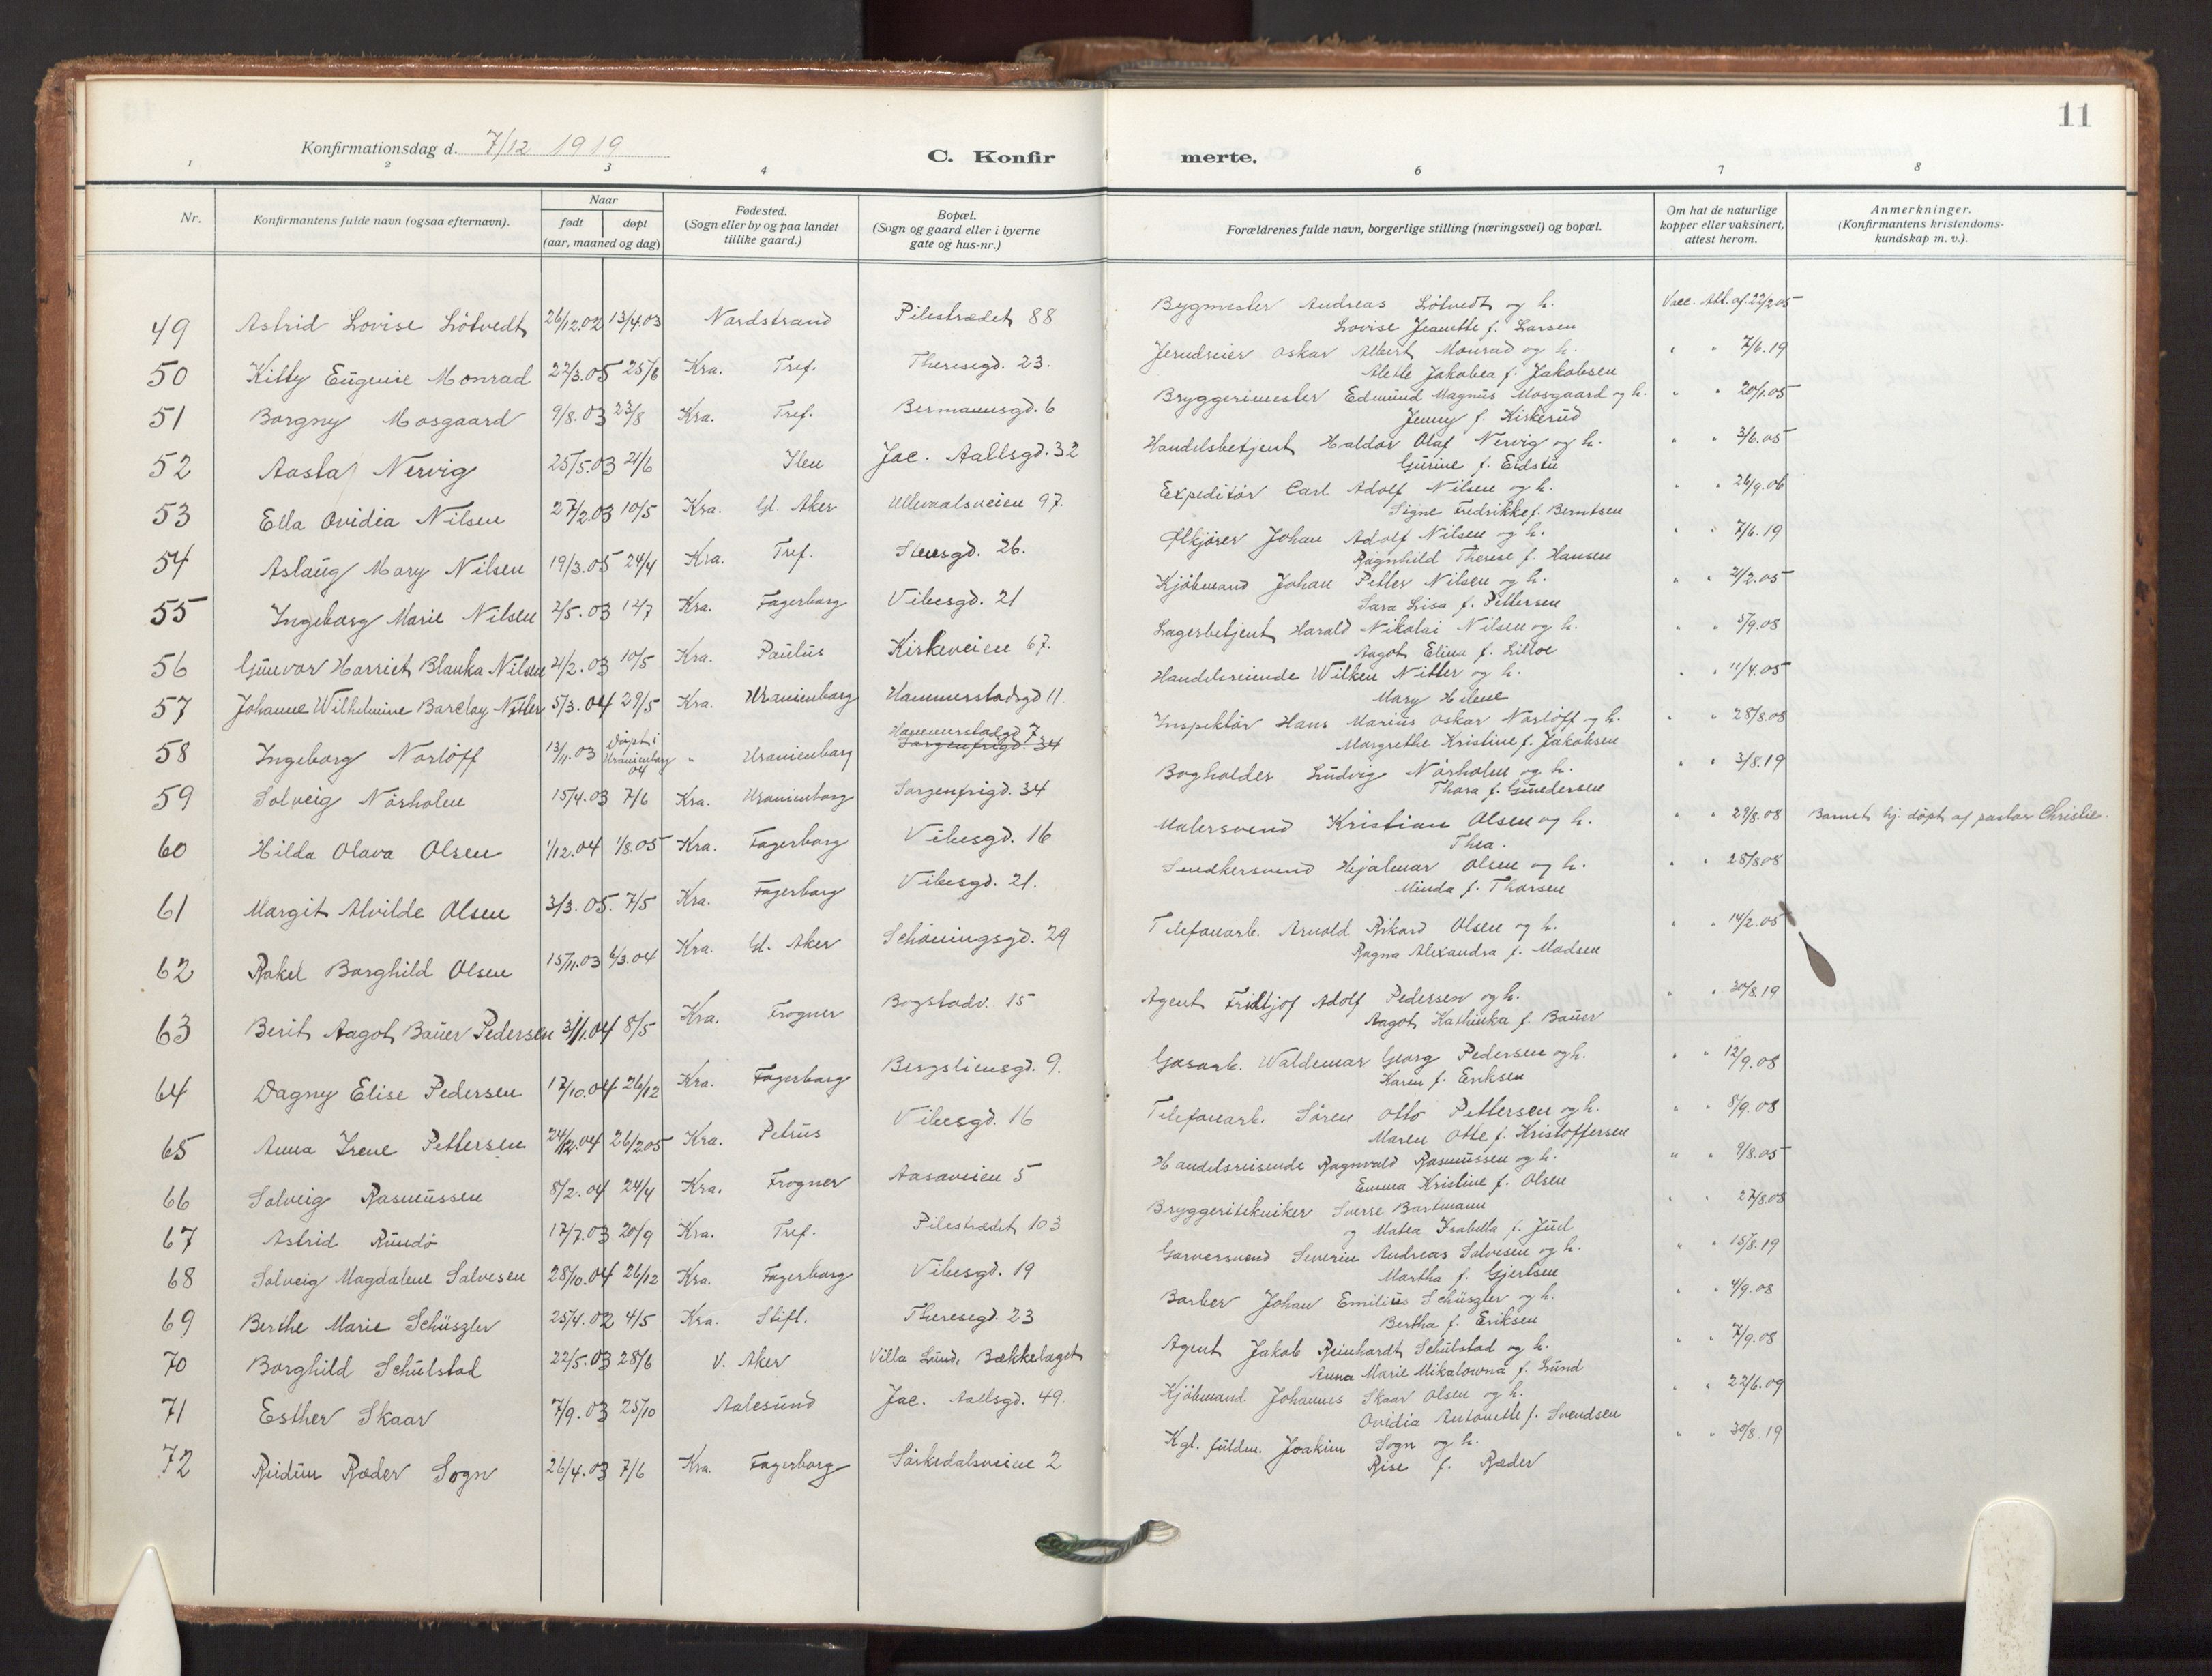 11
Konfirmationsdag d. 7/12 1919
C. Konfirmerte.
1 2 3 4 6 7 8
Nr.
Konfirmantens fulde navn (ogsaa efternavn).
Naar
født døpt
(aar, maaned og dag)
Fødested.
(Sogn eller by og paa landet
tillike gaard.)
Bopæl.
(Sogn og gaard eller i byerne
gate og hus-nr.)
Forældrenes fulde navn, borgerlige stilling (næringsvei) og bopæl.
Om hat de naturlige
kopper eller vaksinert,
attest herom.
Anmerkninger.
(Konfirmantens kristendoms-
kundskap m. v.).
49 Astrid Lovise Lötvedt 26/12.02 13/4.03 Nordstrand Pilestrædet 88 Bygmester Andreas Lötvedt og h. Vacc. Att. af 22/2.05
Lovise Jeanette f. Larsen
50 Kitty Eugenie Monrad 22/3.05 25/6 Kra. Tref. Theresegd. 23. Oskar Albert Monrad og h. " " 7/6.19
Alette Jakobea f. Jakobsen
51 Borgny Mosgaard 9/8.03 23/8 Kra. Tref. Bermannsgd. 6 Bryggerimester Edmund Magnus Mosgaard og h. " " 20/1.05
Jenny f. Kirkerud
52 Aasta Nervig 25/5.03 21/6 Ilen Jac. Aallsgd. 32 Handelsbetjent Haldor Olaf Nervig og h. " " 3/6.05
Gurine f. Eidstu
53 Ella Ovidia Nilsen 27/2.03 10/5 Kra. Gl. Aker Ullevaalsveien 97. Expeditör Carl Adolf Nilsen og h. " " 26/9.06
Signe Fredrikke f. Berntsen
54 Aslaug Mary Nilsen 19/3.05 24/4 Kra. Tref. Stensgd. 26. Ølkjører Johan Adolf Nilsen og h. " " 7/6.19
Ragnhild Therese f. Hansen
55 Ingeborg Marie Nilsen 2/5.03 12/7 Kra. Fagerborg Vibesgd. 21 Kjöbmand Johan Petter Nilsen og h. " " 21/2.05
Sara Lisa f. Pettersen
56 Gunvor Harriet Blanka Nilsen 21/2.03 10/5 Kra. Paulus Kirkeveien 67. Lagerbetjent Harald Nikolai Nilsen og h. " " 5/9.08
Aagot Elina f. Lilloe
57 Johanne Wilhelmine Barclay Nitter 5/3.04 29/5 Kra. Uranienborg Hammerstadsgd 11. Handelsreisende Wilken Nitter og h. " " 11/4.05
Mary Helene
58 Ingeborg Norlöff 13/11.03 Døpt i Uranienborg 04 " Uranienborg Hammerstadgd 7 Sorgenfrigd. 34 Inspektör Hans Marius Oskar Norlöff og h. " " 28/8.08
Margrethe Kristine f. Jakobsen
59 Solveig Nörholm 15/4.03 7/6 Kra. Uranienborg Sorgenfrigd. 34 Bogholder Ludvig Nörholm og h. " " 3/8.19
Thora f. Gundersen
60 Hilda Olava Olsen 1/12.04 1/8.05 Kra. Fagerborg Vibesgd. 16 Malersvend Kristian Olsen og h. " " 29/8.08 Barnet hj. døpt af pastor Christie.
Thea.
61 Margit Alvilde Olsen 3/3.05. 7/5 Kra. Fagerborg Vibesgd. 21. Snedkersvend Hjalmar Olsen og h. " " 28/8.08
Minda f. Thorsen
62 Rakel Borghild Olsen 15/11.03 6/3.04 Kra. Gl. Aker Schöningsgd. 29 Telefonarb. Arnold Rikard Olsen og h. " " 14/2.05
Ragna Alexandra f. Madsen
63 Berit Aagot Bauer Pedersen 3/1.04 8/5 Kra. Frogner Bogstadv. 15 Agent Fridtjof Adolf Pedersen og h. " " 30/8.19
Aagot Kathinka f. Bauer
64 Dagny Elise Pedersen 17/10.04 26/12 Kra. Fagerborg Bergsliensgd. 9. Gasarb. Waldemar Georg Pedersen og h. " " 12/9.08
Karen f. Eriksen
65 Anna Irene Pettersen 24/12.04 26/2.05 Kra. Petrus Vibesgd. 16 Telefonarb. Sören Otto Pettersen og h. " " 8/9.08
Maren Otte f. Kristoffersen
66 Solveig Rasmussen 8/2.04 24/4 Kra. Frogner Aasaveien 5 Handelsreisende Ragnvald Rasmussen og h. " " 9/8.05
Emma Kristine f. Olsen
67 Astrid Rundö 17/7.03 20/9 Kra. Tref. Pilestrædet 103 Bryggeritekniker Sverre Bartmann " " 27/8.08
og Matea Isabella f. Juel
68 Solveig Magdalene Salvesen 28/10.04 26/12 Kra. Fagerborg Vibesgd. 19 Garversvend Severin Andreas Salvesen og h. " " 15/8.19
Martha f. Gjertsen
69 Berthe Marie Schüszler 25/4.02 4/5 Kra. Stift. Theresegd. 23 Barber Johan Emilius Schüszler og h. " " 4/9.08
Bertha f. Eriksen
70 Borghild Schulstad 22/5.03 28/6 V. Aker Villa Lund, Bækkelaget Agent Jakob Reinhardt Schulstad og h. " " 7/9.08
Anna Marie Mikalowna f. Lund
71 Esther Skaar 7/9.03 25/10 Aalesund Jac. Aallsgd. 49. Kjöbmand Johannes Skaar Olsen og h. " " 22/6.09
Ovidia Antonette f. Svendsen
72 Reidun Ræder Sogn 26/4.03 7/6 Kra. Fagerborg Sörkedalsveiene 2 Kgl. fuldm. Joakim Sogn og h. " " 30/8.19
Rise f. Ræder